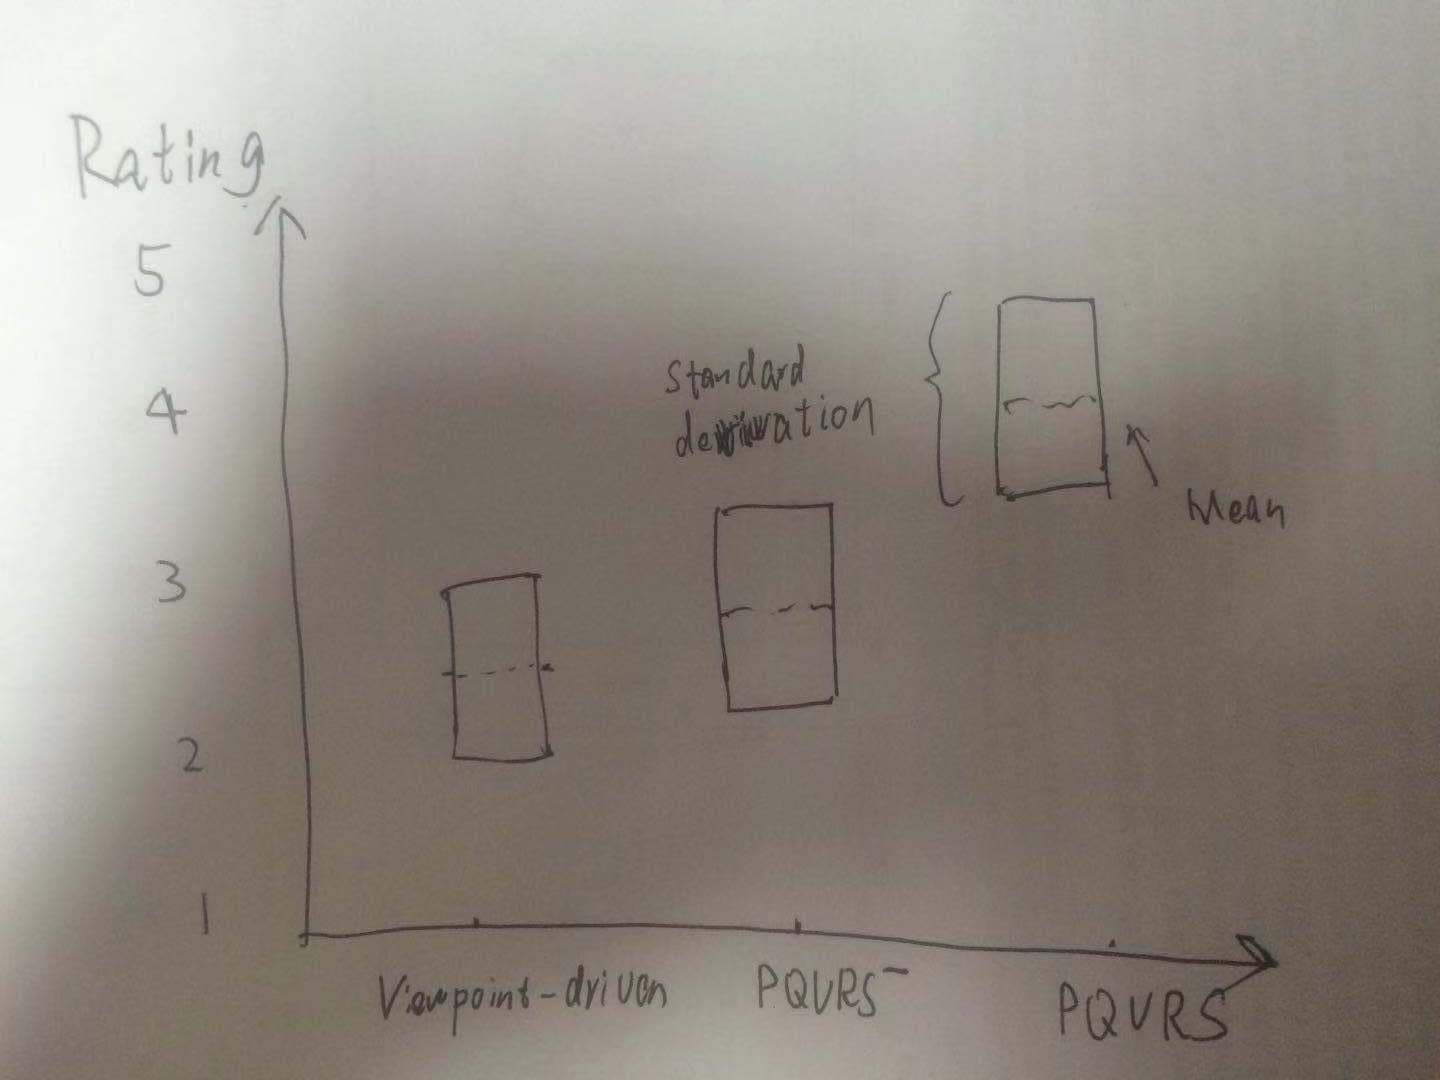 Rating
5
4
3
2
1
Standard
derivation
Mean
Viewpoint-driven
PQVRS⁻
PQVRS